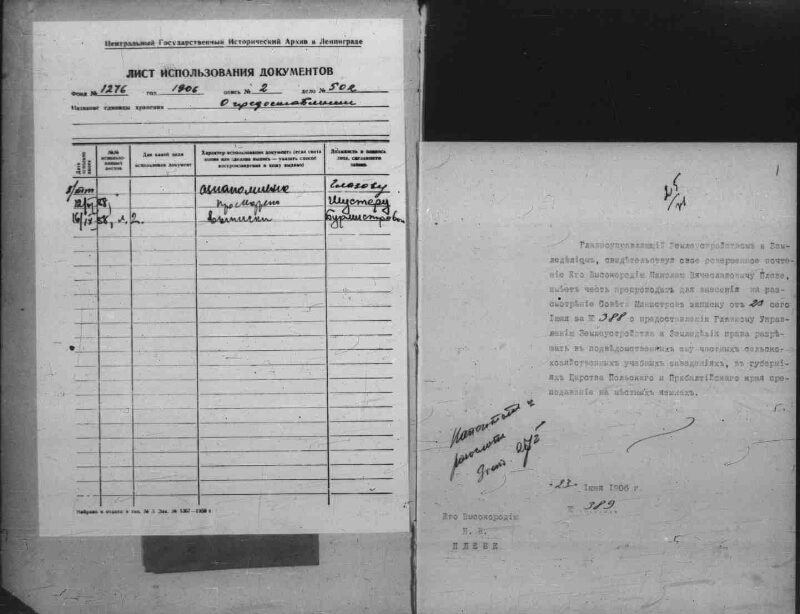 Центральный Государственный Исторический Архив в Ленинграде
ЛИСТ ИСПОЛЬЗОВАНИЯ ДОКУМЕНТОВ
Фонд № 1276 год 1906 опись № 2 дело № 502
Название единицы хранения О предоставлении
Дата использования
№№ использованных листов
Для какой цели использован документ
Характер использования документа (если снята копия или сделана выпись — указать способ воспроизведения и кому выданы)
Должность и подпись лица, сделавшего запись
ознакомилась
12/VI 58 просмотрел Шустеру
16/IX 58, л. 2. выписки Бурмистрова
1
25/VI
Главноуправляющій Землеустройствомъ и Земледѣліемъ, свидѣтельствуя свое совершенное почтеніе Его Высокородію Николаю Вячеславовичу Плеве,
имѣетъ честь препроводить для внесенія на разсмотрѣніе Совѣта Министровъ записку отъ 23 сего
Іюня за № 388 о предоставленіи Главному Управленію Землеустройства и Земледѣлія права разрѣшать въ подвѣдомственныхъ ему частныхъ сельскохозяйственныхъ учебныхъ заведеніяхъ, въ губерніяхъ Царства Польскаго и Прибалтійскаго края преподаваніе на мѣстныхъ языкахъ.
Напечатать и
разослать
23 Іюня 1906 г.
№ 389
Его Высокородію
Н. В.
ПЛЕВЕ